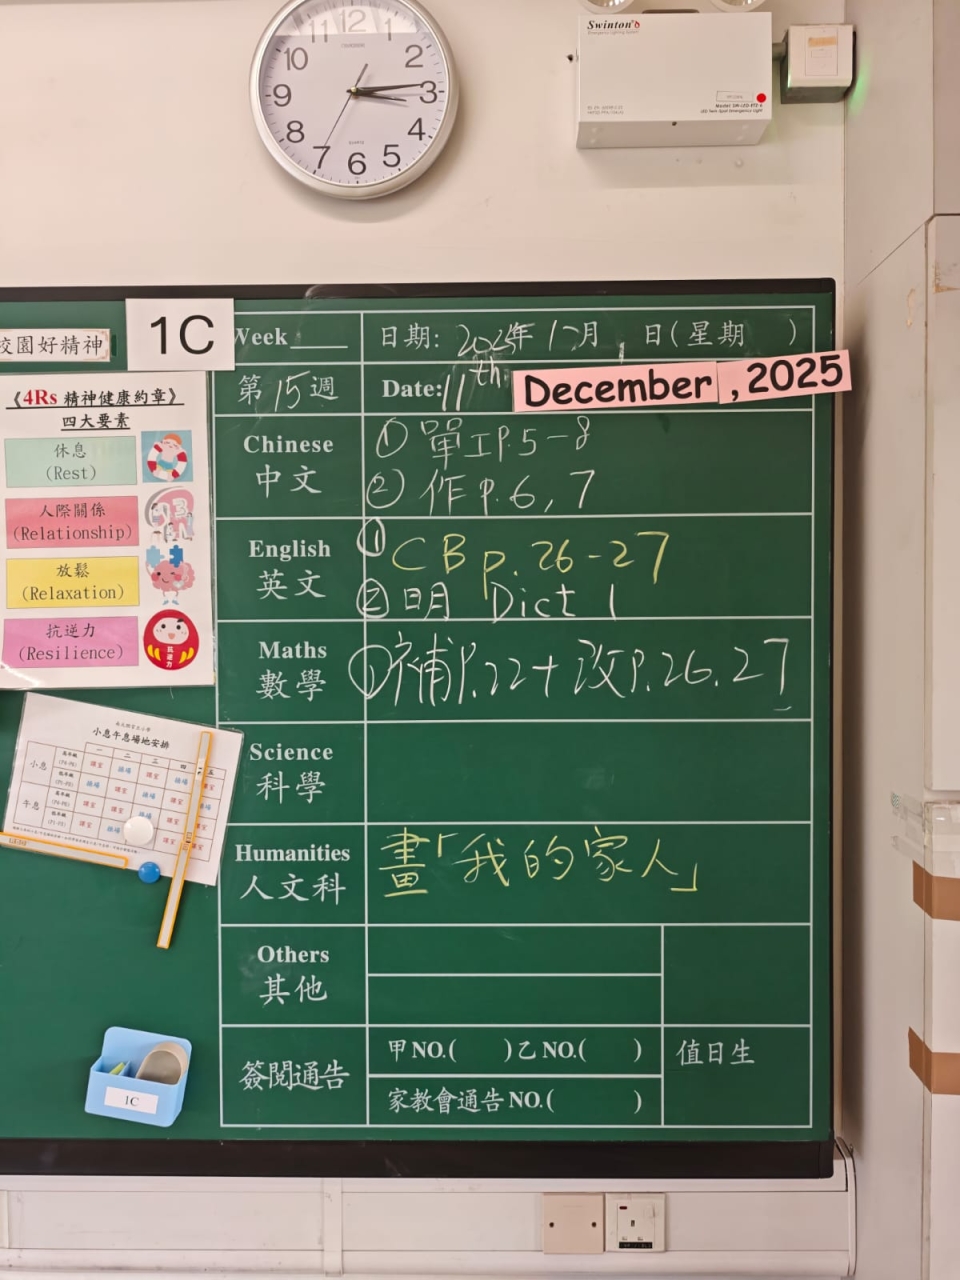 12
11
10
2
9
3
8
4
7
6
5
QUARTZ
Swinton's
Emergency Lighting System
LED Twin Spot Emergency Light
校園好精神
1C
《4Rs 精神健康約章》
四大要素
休息
(Rest)
人際關係
(Relationship)
放鬆
(Relaxation)
抗逆力
(Resilience)
抗逆力
小息午息場地安排
一 二 三 四 五
小息
午息
1C
Week
日期: 2025年 12月 日(星期 )
第15週
Date: 11th December , 2025
Chinese
中文
① 單工P.5-8
② 作P.6,7
English
英文
① CB p.26-27
② 明 Dict 1
Maths
數學
① 補P.22+改P.26.27
Science
科學
Humanities
人文科
畫「我的家人」
Others
其他
簽閱通告
甲NO.( )乙NO.( )
家教會通告NO.( )
值日生